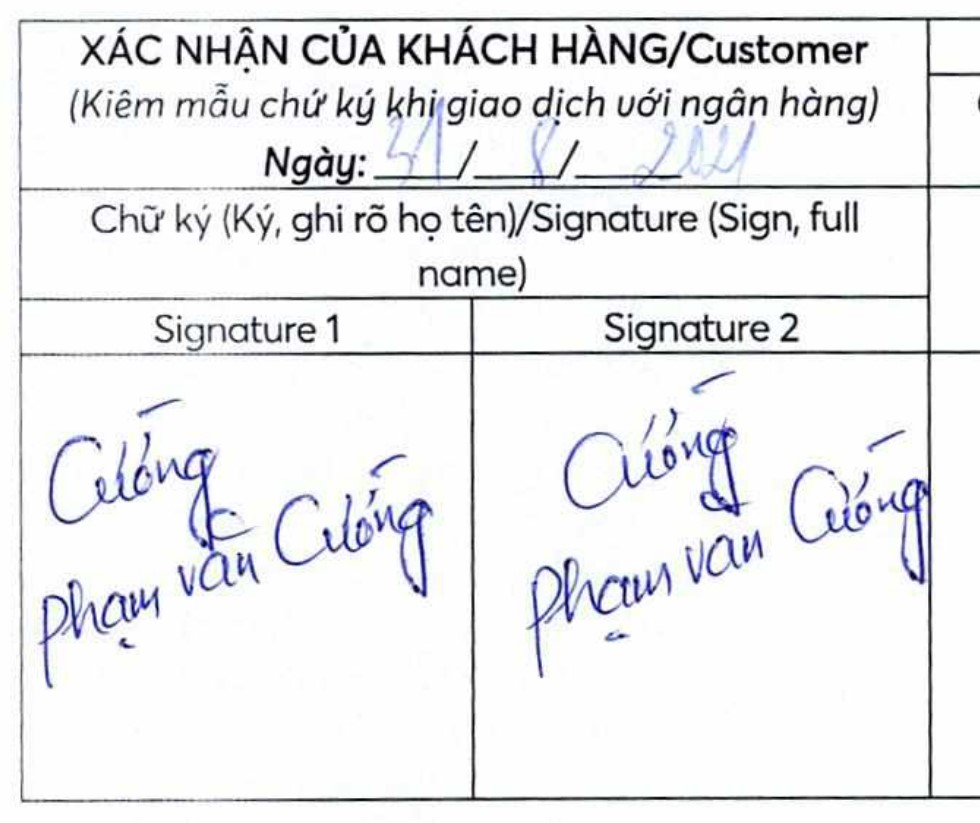 XÁC NHẬN CỦA KHÁCH HÀNG/Customer
(Kiêm mẫu chữ ký khi giao dịch với ngân hàng)
Ngày: 31/8/2021
Chữ ký (Ký, ghi rõ họ tên)/Signature (Sign, full
name)
Signature 1
Signature 2
Cường
Phạm Văn Cường
Cường
Phạm Văn Cường